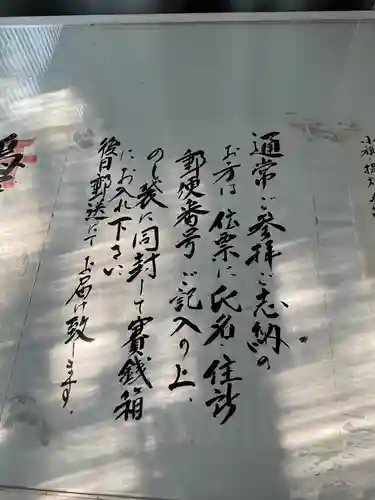 通常ご参拝ご志納の
お方は伝票に氏名・住所
郵便番号ご記入の上、
のし袋に同封して賽銭箱
にお入れ下さい
後日郵送にてお届け致します。